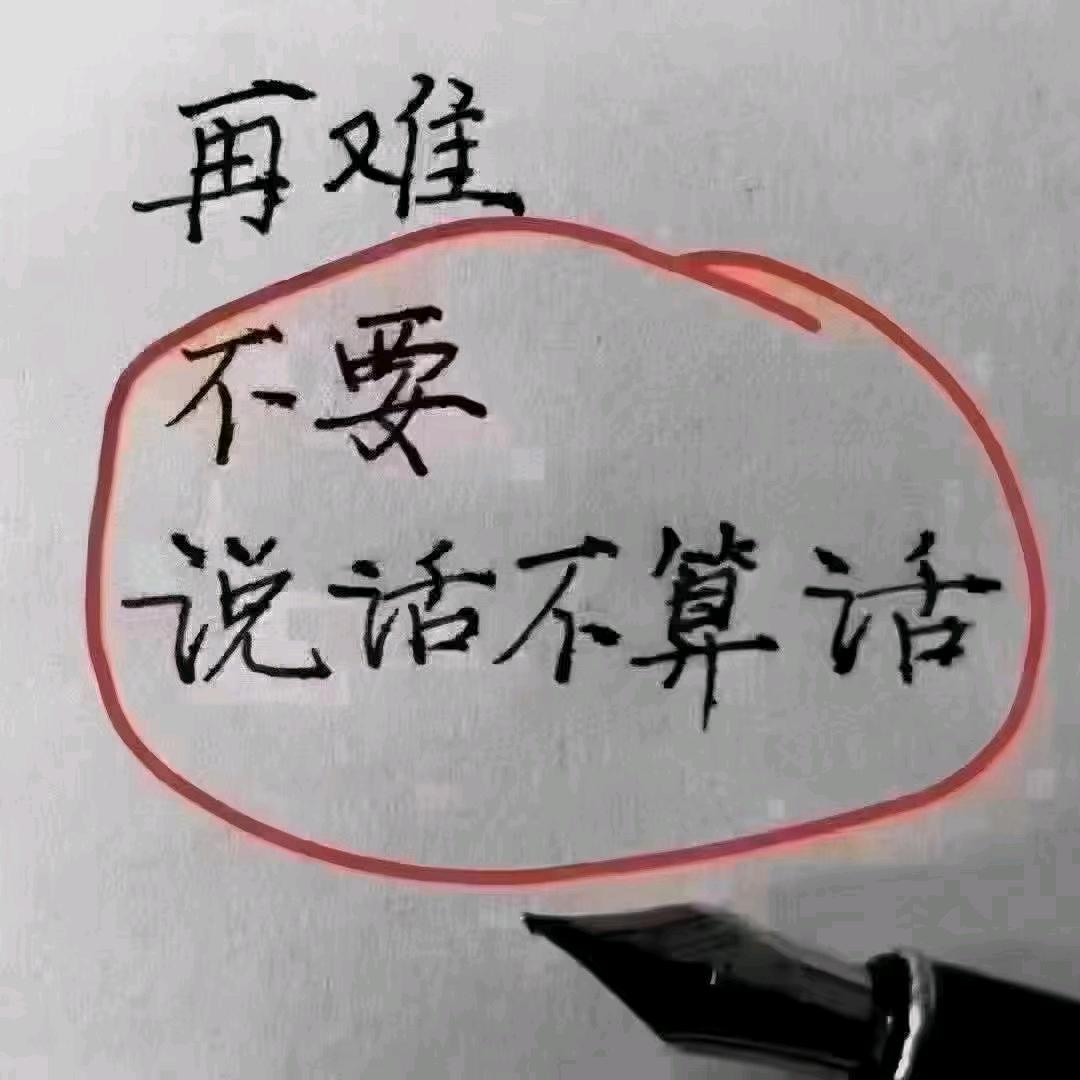 再难
不要
说话不算话